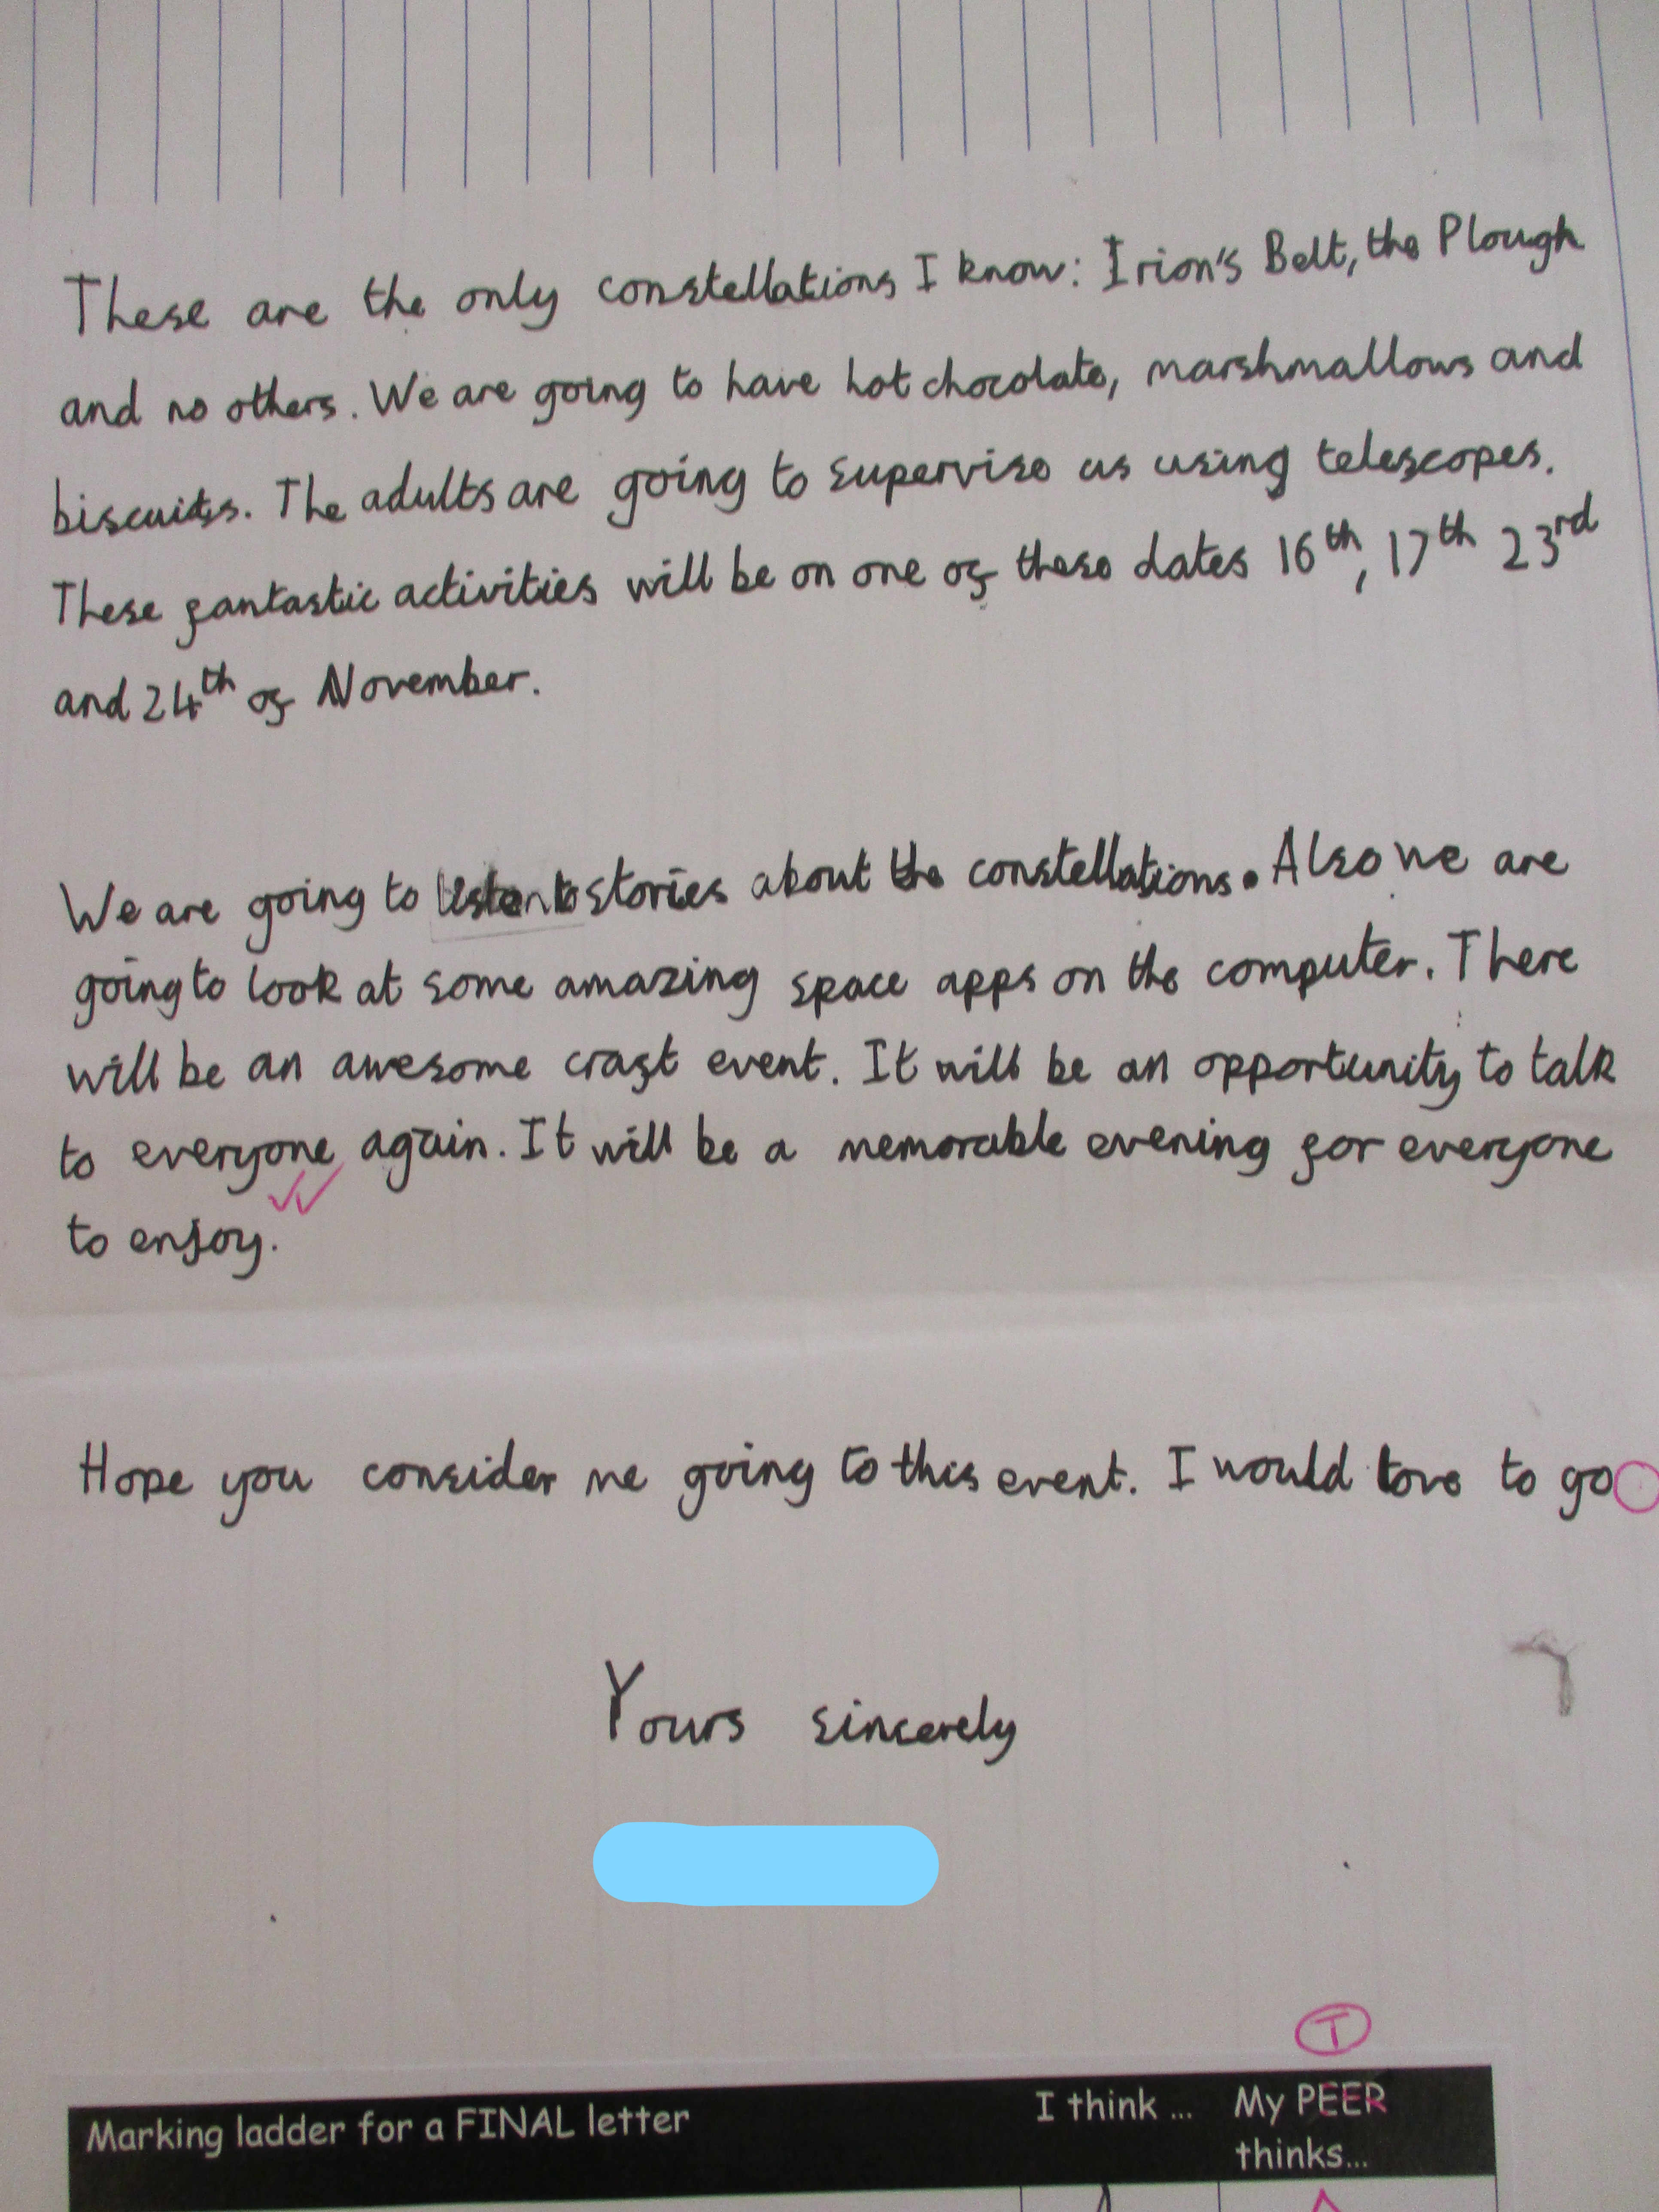 These are the only constellations I know: Irion's Belt, the Plough
and no others. We are going to have hot chocolate, marshmallows and
biscuits. The adults are going to supervise us using telescopes.
These fantastic activities will be on one of these dates 16th, 17th 23rd
and 24th of November.
We are going to listen to stories about the constellations. Also we are
going to look at some amazing space apps on the computer. There
will be an awesome craft event. It will be an opportunity to talk
to everyone again. It will be a memorable evening for everyone
to enjoy.
Hope you consider me going to this event. I would love to go
Yours sincerely
T
Marking ladder for a FINAL letter I think ... My PEER
thinks...